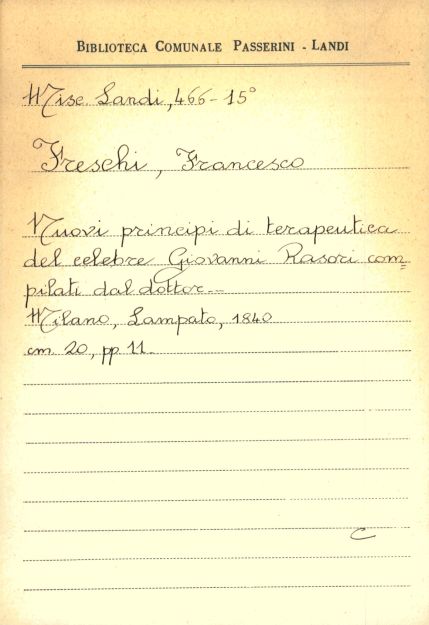 BIBLIOTECA COMUNALE PASSERINI - LANDI
Misc Landi, 466 - 15°
Freschi, Francesco
Nuovi principi di terapeutica
del celebre Giovanni Rasori com=
pilati dal dottor...
Milano, Lampato, 1840
cm. 20, pp 11.
C